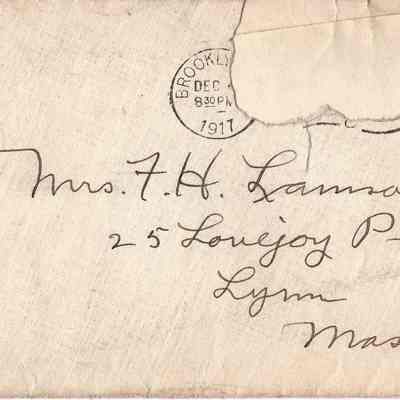 BROOKLY
DEC
8 30 PM
1917
Mrs. F. H. Lamso
25 Lovejoy P
Lynn
Mas